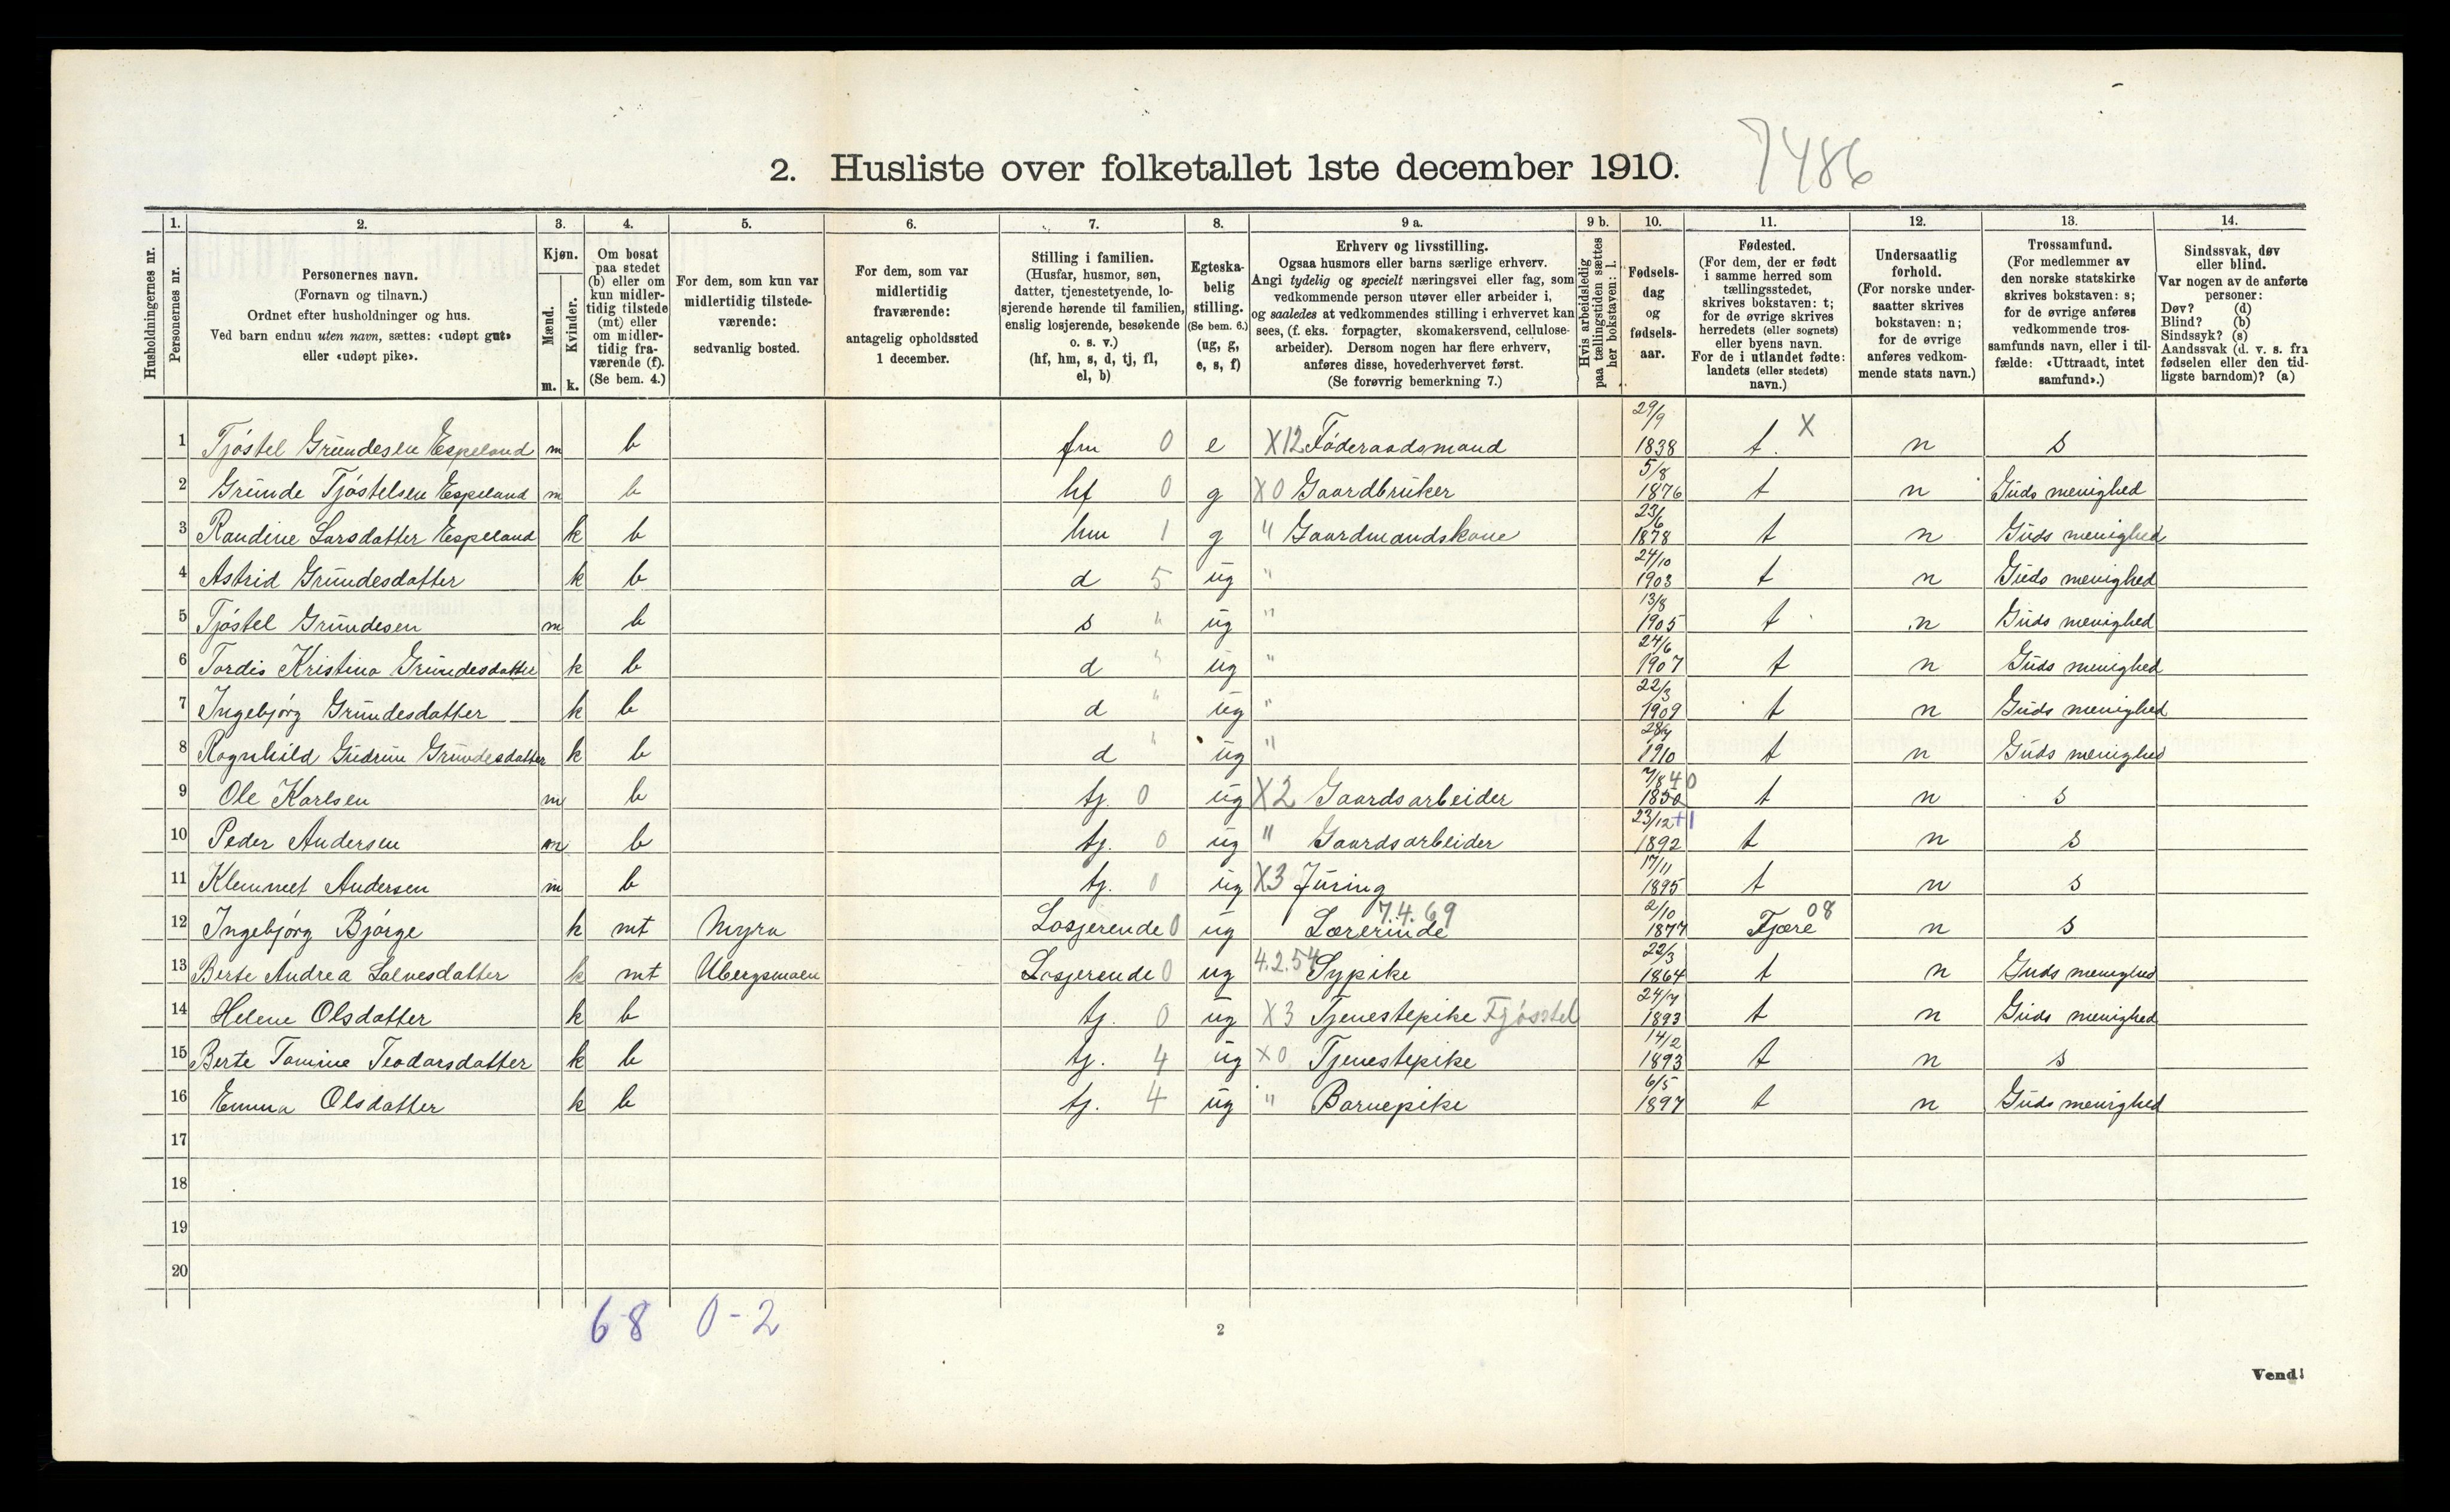 2. Husliste over folketallet 1ste december 1910. 7486
1. 2. 3. 4. 5. 6. 7. 8. 9 a. 9 b. 10. 11. 12. 13. 14.
Husholdningernes nr.
Personernes nr.
Personernes navn.
(Fornavn og tilnavn.)
Ordnet efter husholdninger og hus.
Ved barn endnu uten navn, sættes: «udøpt gut»
eller «udøpt pike».
Kjøn.
Mænd.
Kvinder.
m. k.
Om bosat
paa stedet
(b) eller om
kun midler-
tidig tilstede
(mt) eller
om midler-
tidig fra-
værende (f).
(Se bem. 4.)
For dem, som kun var
midlertidig tilstede-
værende:
sedvanlig bosted.
For dem, som var
midlertidig
fraværende:
antagelig opholdssted
1 december.
Stilling i familien.
(Husfar, husmor, søn,
datter, tjenestetyende, lo-
sjerende hørende til familien,
enslig losjerende, besøkende
o. s. v.)
(hf, hm, s, d, tj, fl,
el, b)
Egteska-
belig
stilling.
(Se bem. 6.)
(ug, g,
e, s, f)
Erhverv og livsstilling.
Ogsaa husmors eller barns særlige erhverv.
Angi tydelig og specielt næringsvei eller fag, som
vedkommende person utøver eller arbeider i,
og saaledes at vedkommendes stilling i erhvervet kan
sees, (f. eks. forpagter, skomakersvend, cellulose-
arbeider). Dersom nogen har flere erhverv,
anføres disse, hovederhvervet først.
(Se forøvrig bemerkning 7.)
Hvis arbeidsledig
paa tællingstiden sættes
her bokstaven: l.
Fødsels-
dag
og
fødsels-
aar.
Fødested.
(For dem, der er født
i samme herred som
tællingsstedet,
skrives bokstaven: t;
for de øvrige skrives
herredets (eller sognets)
eller byens navn.
For de i utlandet fødte:
landets (eller stedets)
navn.)
Undersaatlig
forhold.
(For norske under-
saatter skrives
bokstaven: n;
for de øvrige
anføres vedkom-
mende stats navn.)
Trossamfund.
(For medlemmer av
den norske statskirke
skrives bokstaven: s;
for de øvrige anføres
vedkommende tros-
samfunds navn, eller i til-
fælde: «Uttraadt, intet
samfund».)
Sindssvak, døv
eller blind.
Var nogen av de anførte
personer:
Døv? (d)
Blind? (b)
Sindssyk? (s)
Aandssvak (d. v. s. fra
fødselen eller den tid-
ligste barndom)? (a)
1 Tjøstel Grundesen Espeland m b fm 0 e X12 Føderaadsmand 29/9 1838 t. X n s
2 Grunde Tjøstelsen Espeland m b hf 0 g X0 Gaardbruker 5/8 1876 t n Guds menighed
3 Randine Larsdatter Espeland k b hm 1 g " Gaardmandskone 23/6 1878 t n Guds menighed
4 Astrid Grundesdatter k b d 5 ug " 24/10 1903 t n Guds menighed
5 Tjøstel Grundesen m b s " ug " 13/8 1905 t n Guds menighed
6 Tordis Kristina Grundesdatter k b d " ug " 24/6 1907 t n Guds menighed
7 Ingebjørg Grundesdatter k b d " ug " 22/3 1909 t n Guds menighed
8 Ragnhild Gudrun Grundesdatter k b d " ug " 1910 t n Guds menighed
9 Ole Karlsen m b tj. 0 ug X2 Gaardsarbeider 7/8 40 1850 t n s
10 Peder Andersen m b tj. 0 ug " Gaardsarbeider 23/12 +1 1892 t n s
11 Klemmet Andersen m b tj. 0 ug X3 Juring 17/11 1895 t n s
12 Ingebjørg Bjørge k mt Myra Losjerende 0 ug 7.4.69 Lærerinde 2/10 1877 Fjære 08 n s
13 Berte Andrea Salvesdatter k mt Ubergsmoen Losjerende 0 ug 4.2.54 Sypike 22/3 1864 t n Guds menighed
14 Helene Olsdatter k b tj. 0 ug X3 Tjenestepike Fjøsstel 24/7 1893 t n Guds menighed
15 Berte Tomine Teodorsdatter k b tj. 4 ug X0 Tjenestepike 14/2 1893 t n s
16 Emma Olsdatter k b tj. 4 ug " Barnepike 6/5 1897 t n Guds menighed
17
18
19
20
6-8 0-2
2
Vend!